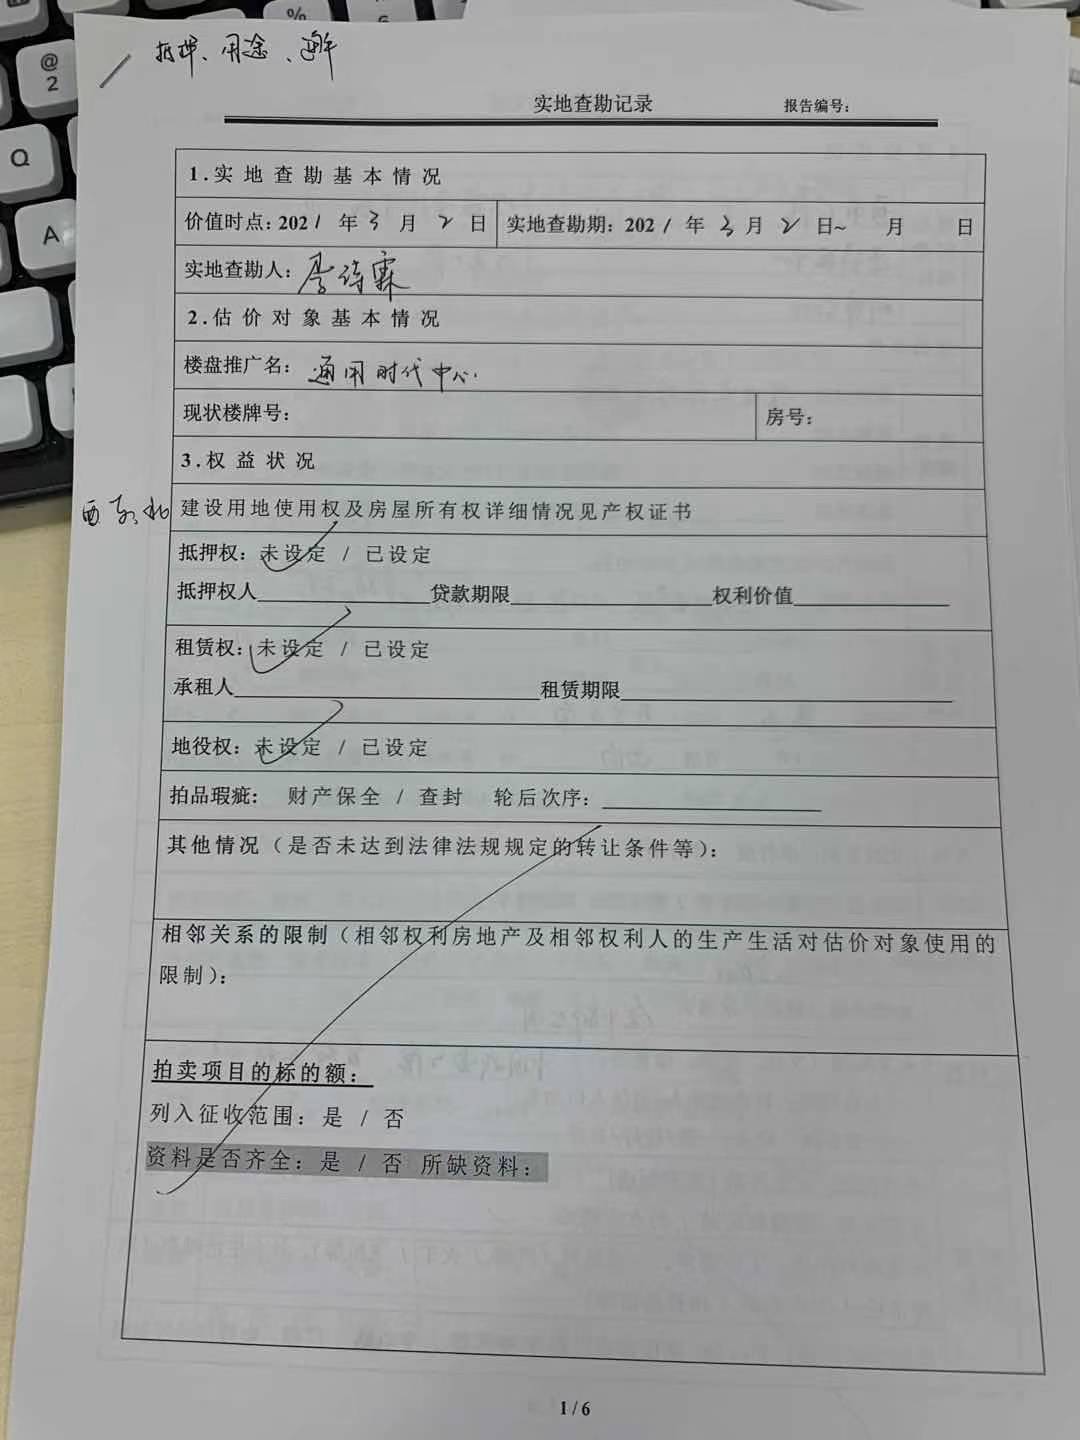 抵押、用途、
实地查勘记录 报告编号:
1.实地查勘基本情况
价值时点:2021 年 3 月 2 日 实地查勘期:2021 年 3 月 2 日~ 月 日
实地查勘人:李诗霖
2.估价对象基本情况
楼盘推广名:通用时代中心
现状楼牌号: 房号:
3.权益状况
西 东 北 建设用地使用权及房屋所有权详细情况见产权证书
抵押权:未设定 / 已设定
抵押权人 贷款期限 权利价值
租赁权:未设定 / 已设定
承租人 租赁期限
地役权:未设定 / 已设定
拍品瑕疵: 财产保全 / 查封 轮后次序:
其他情况(是否未达到法律法规规定的转让条件等):
相邻关系的限制(相邻权利房地产及相邻权利人的生产生活对估价对象使用的
限制):
拍卖项目的标的额:
列入征收范围:是 / 否
资料是否齐全:是 / 否 所缺资料:
1 / 6
@
2
Q
A
%